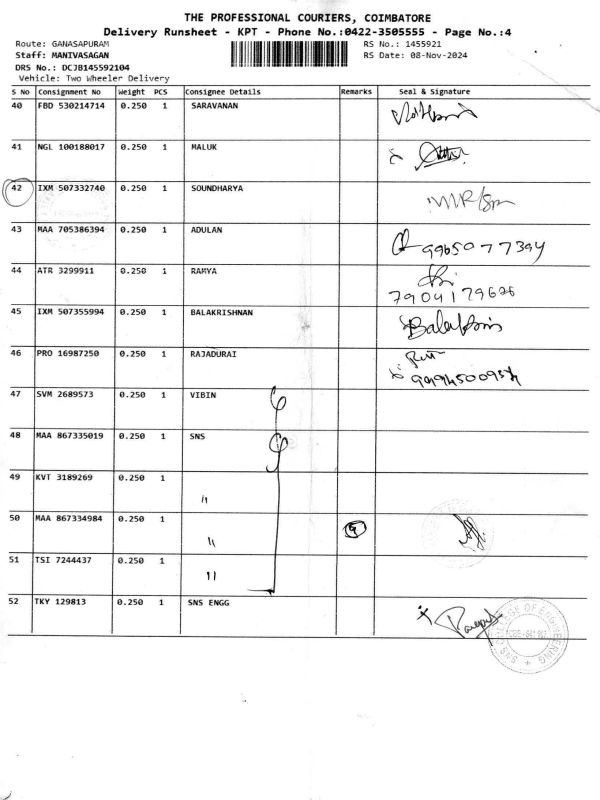 THE PROFESSIONAL COURIERS, COIMBATORE
Delivery Runsheet - KPT - Phone No.:0422-3505555 - Page No.:4
Route: GANASAPURAM RS No.: 1455921
Staff: MANIVASAGAN RS Date: 08-Nov-2024
DRS No.: DCJB145592104
Vehicle: Two Wheeler Delivery
S No Consignment No Weight PCS Consignee Details Remarks Seal & Signature
40 FBD 530214714 0.250 1 SARAVANAN
41 NGL 100188017 0.250 1 MALUK
42 IXM 507332740 0.250 1 SOUNDHARYA
43 MAA 705386394 0.250 1 ADULAN 9965077394
44 ATR 3299911 0.250 1 RAMYA
7904179626
45 IXM 507355994 0.250 1 BALAKRISHNAN
46 PRO 16987250 0.250 1 RAJADURAI
47 SVM 2689573 0.250 1 VIBIN
48 MAA 867335019 0.250 1 SNS
49 KVT 3189269 0.250 1
"
50 MAA 867334984 0.250 1
"
51 TSI 7244437 0.250 1
"
52 TKY 129813 0.250 1 SNS ENGG